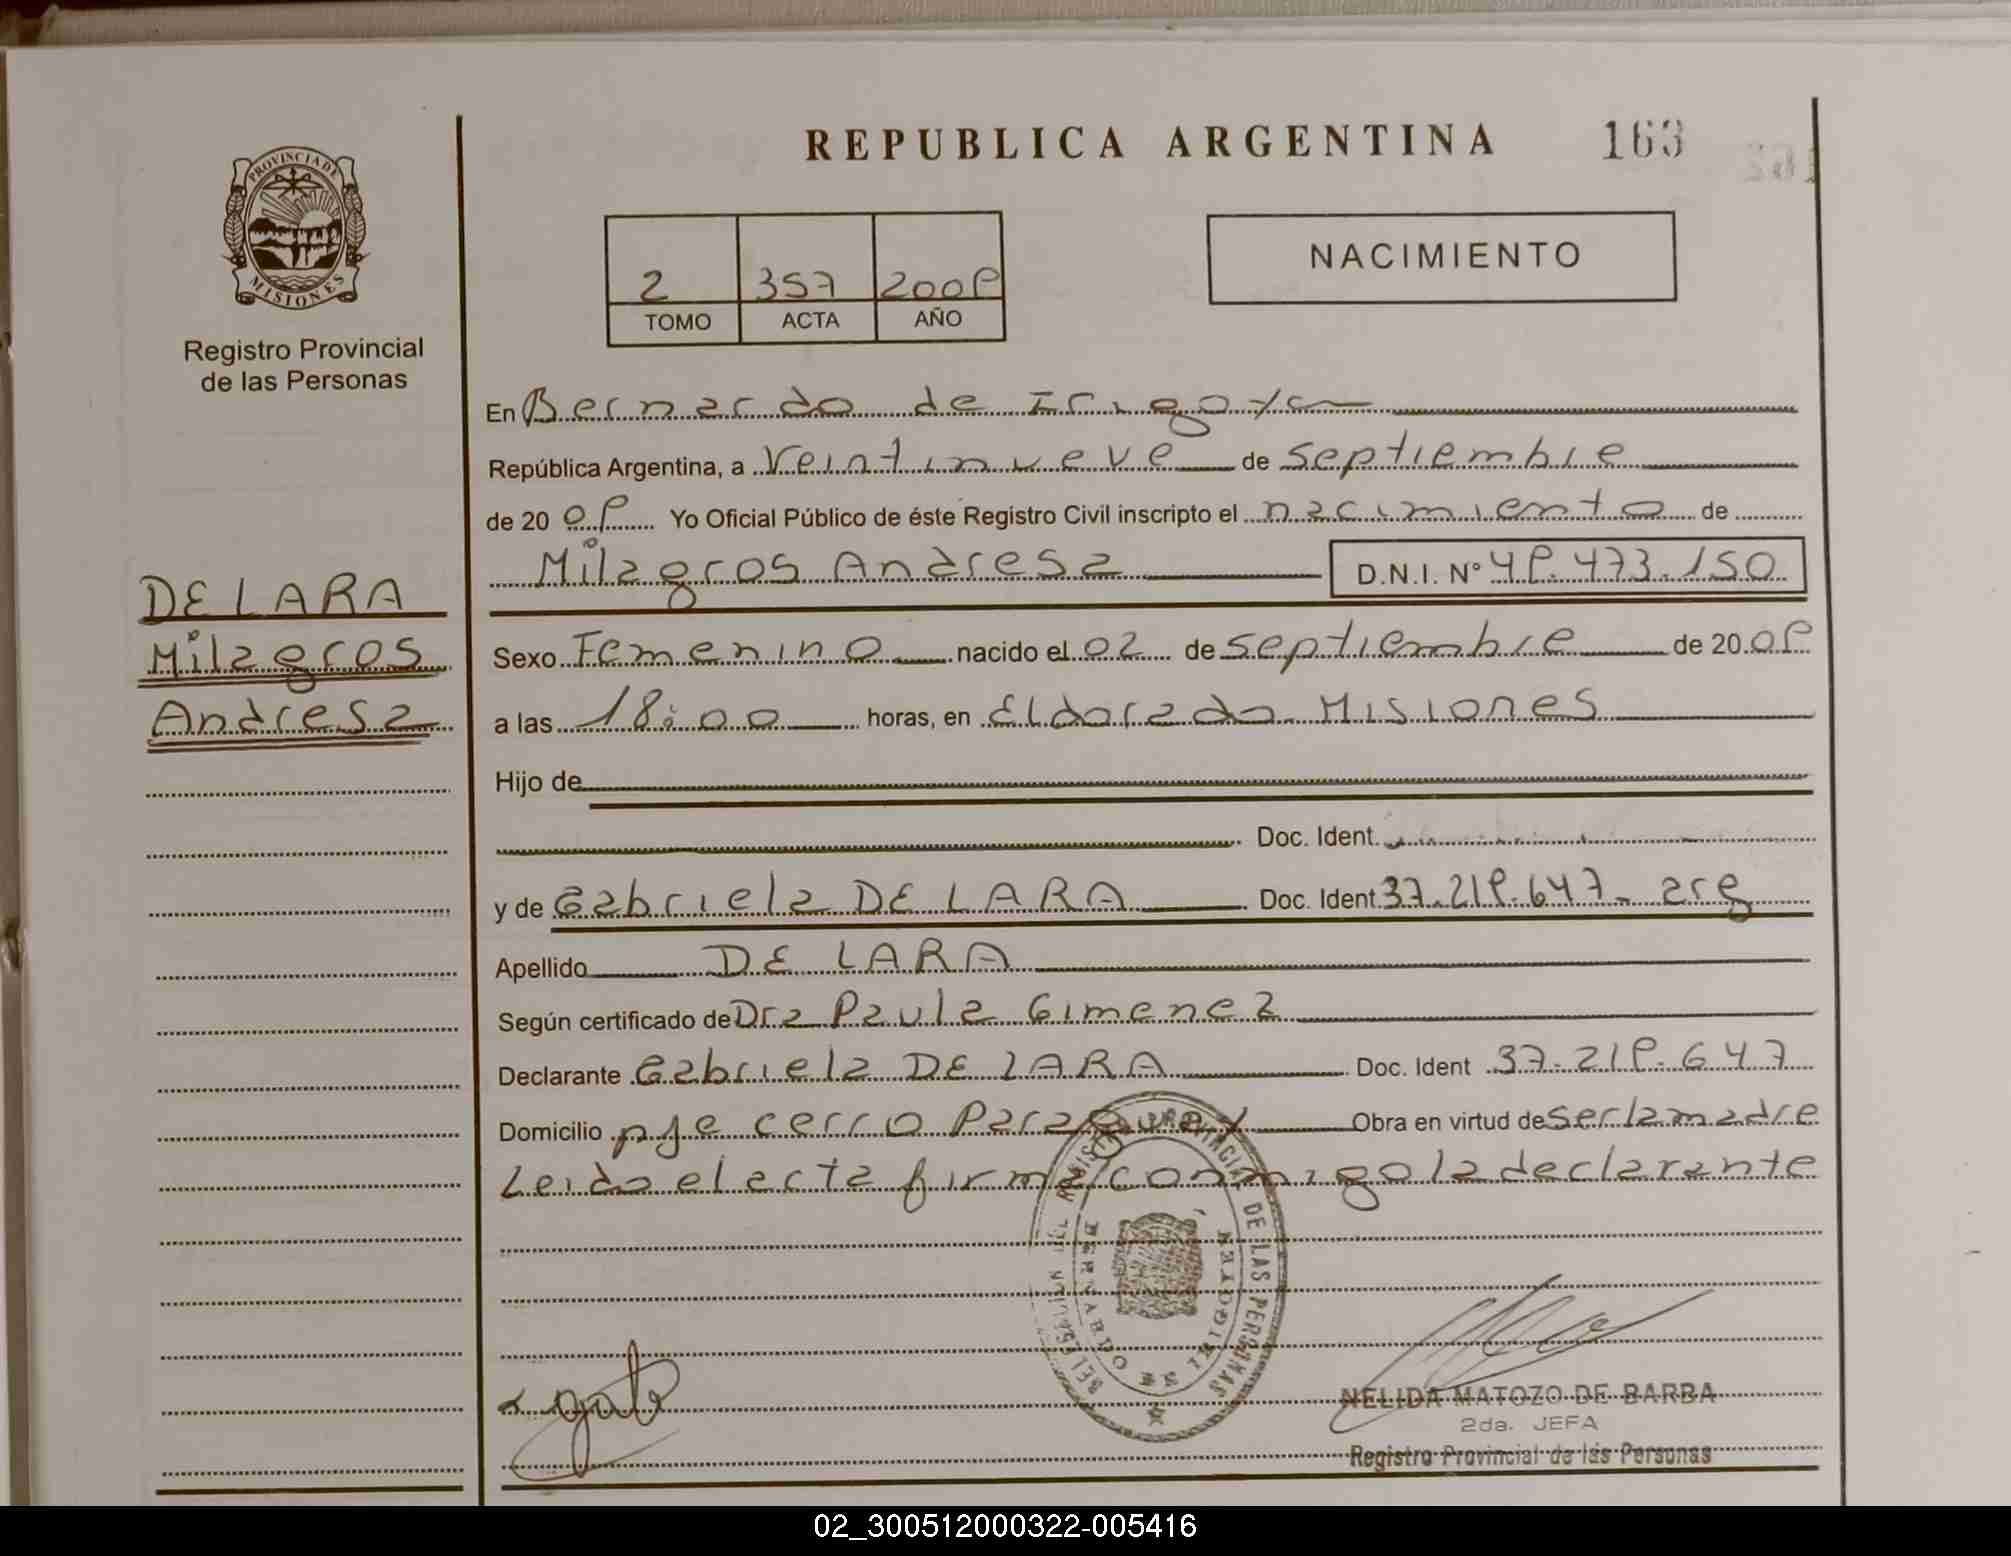 REPUBLICA ARGENTINA 163
PROVINCIA DE
MISIONES
Registro Provincial
de las Personas
NACIMIENTO
2 357 2009
TOMO ACTA AÑO
En Bernardo de Irigoyen
República Argentina, a Veintinueve de septiembre
de 20 09 Yo Oficial Público de éste Registro Civil inscripto el nacimiento de
Milagros Andresa D.N.I. N° 49.473.150
DE LARA
Milagros
Andresa
Sexo Femenino nacido el 02 de septiembre de 20 09
a las 18:00 horas, en Eldorado Misiones
Hijo de
Doc. Ident.
y de Gabriela DE LARA Doc. Ident. 37.219.647- arg
Apellido DE LARA
Según certificado de Dra Paula Gimenez
Declarante Gabriela DE LARA Doc. Ident 37.219.647
Domicilio pje cerro Paraguay Obra en virtud de ser la madre
Leido el acta firma conmigo la declarante
REGISTRO PROVINCIAL DE LAS PERSONAS
BERNARDO DE IRIGOYEN
NELIDA MATOZO DE BARBA
2da. JEFA
Registro Provincial de las Personas
02_300512000322-005416